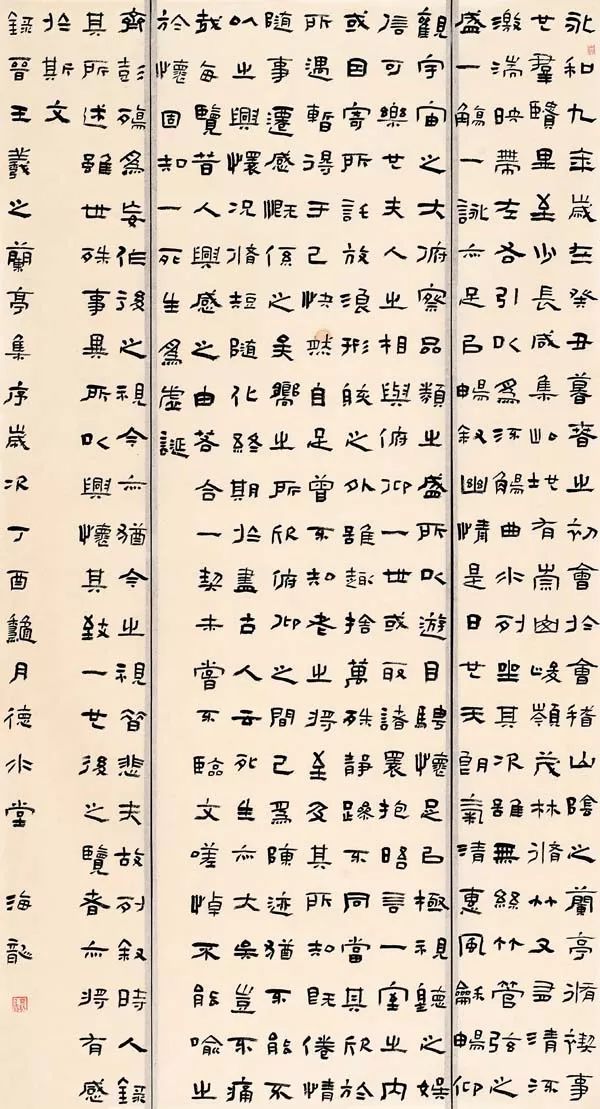 永和九年歲在癸丑暮春之初會於會稽山陰之蘭亭脩禊事
也羣賢畢至少長咸集此地有崇山峻嶺茂林脩竹又有清流
激湍映帶左右引以爲流觴曲水列坐其次雖無絲竹管弦之
盛一觴一詠亦足以暢敘幽情是日也天朗氣清惠風龢暢仰
觀宇宙之大俯察品類之盛所以遊目騁懷足以極視聽之娛
信可樂也夫人之相與俯仰一世或取諸懷抱晤言一室之內
或因寄所託放浪形骸之外雖趣捨萬殊靜躁不同當其欣於
所遇暫得于己快然自足曾不知老之將至及其所知既倦情
隨事遷感慨係之矣嚮之所欣俯仰之間已爲陳迹猶不能不
以之興懷況脩短隨化終期於盡古人云死生亦大矣豈不痛
哉每覽昔人興感之由若合一契未嘗不臨文嗟悼不能喻之
於懷固知一死生爲虛誕
齊彭殤爲妄作後之視今亦猶今之視昔悲夫故列敘時人錄
其所述雖世殊事異所以興懷其致一也後之覽者亦將有感
於斯文
錄晉王羲之蘭亭集序歲次丁酉龝月德水堂 海龍